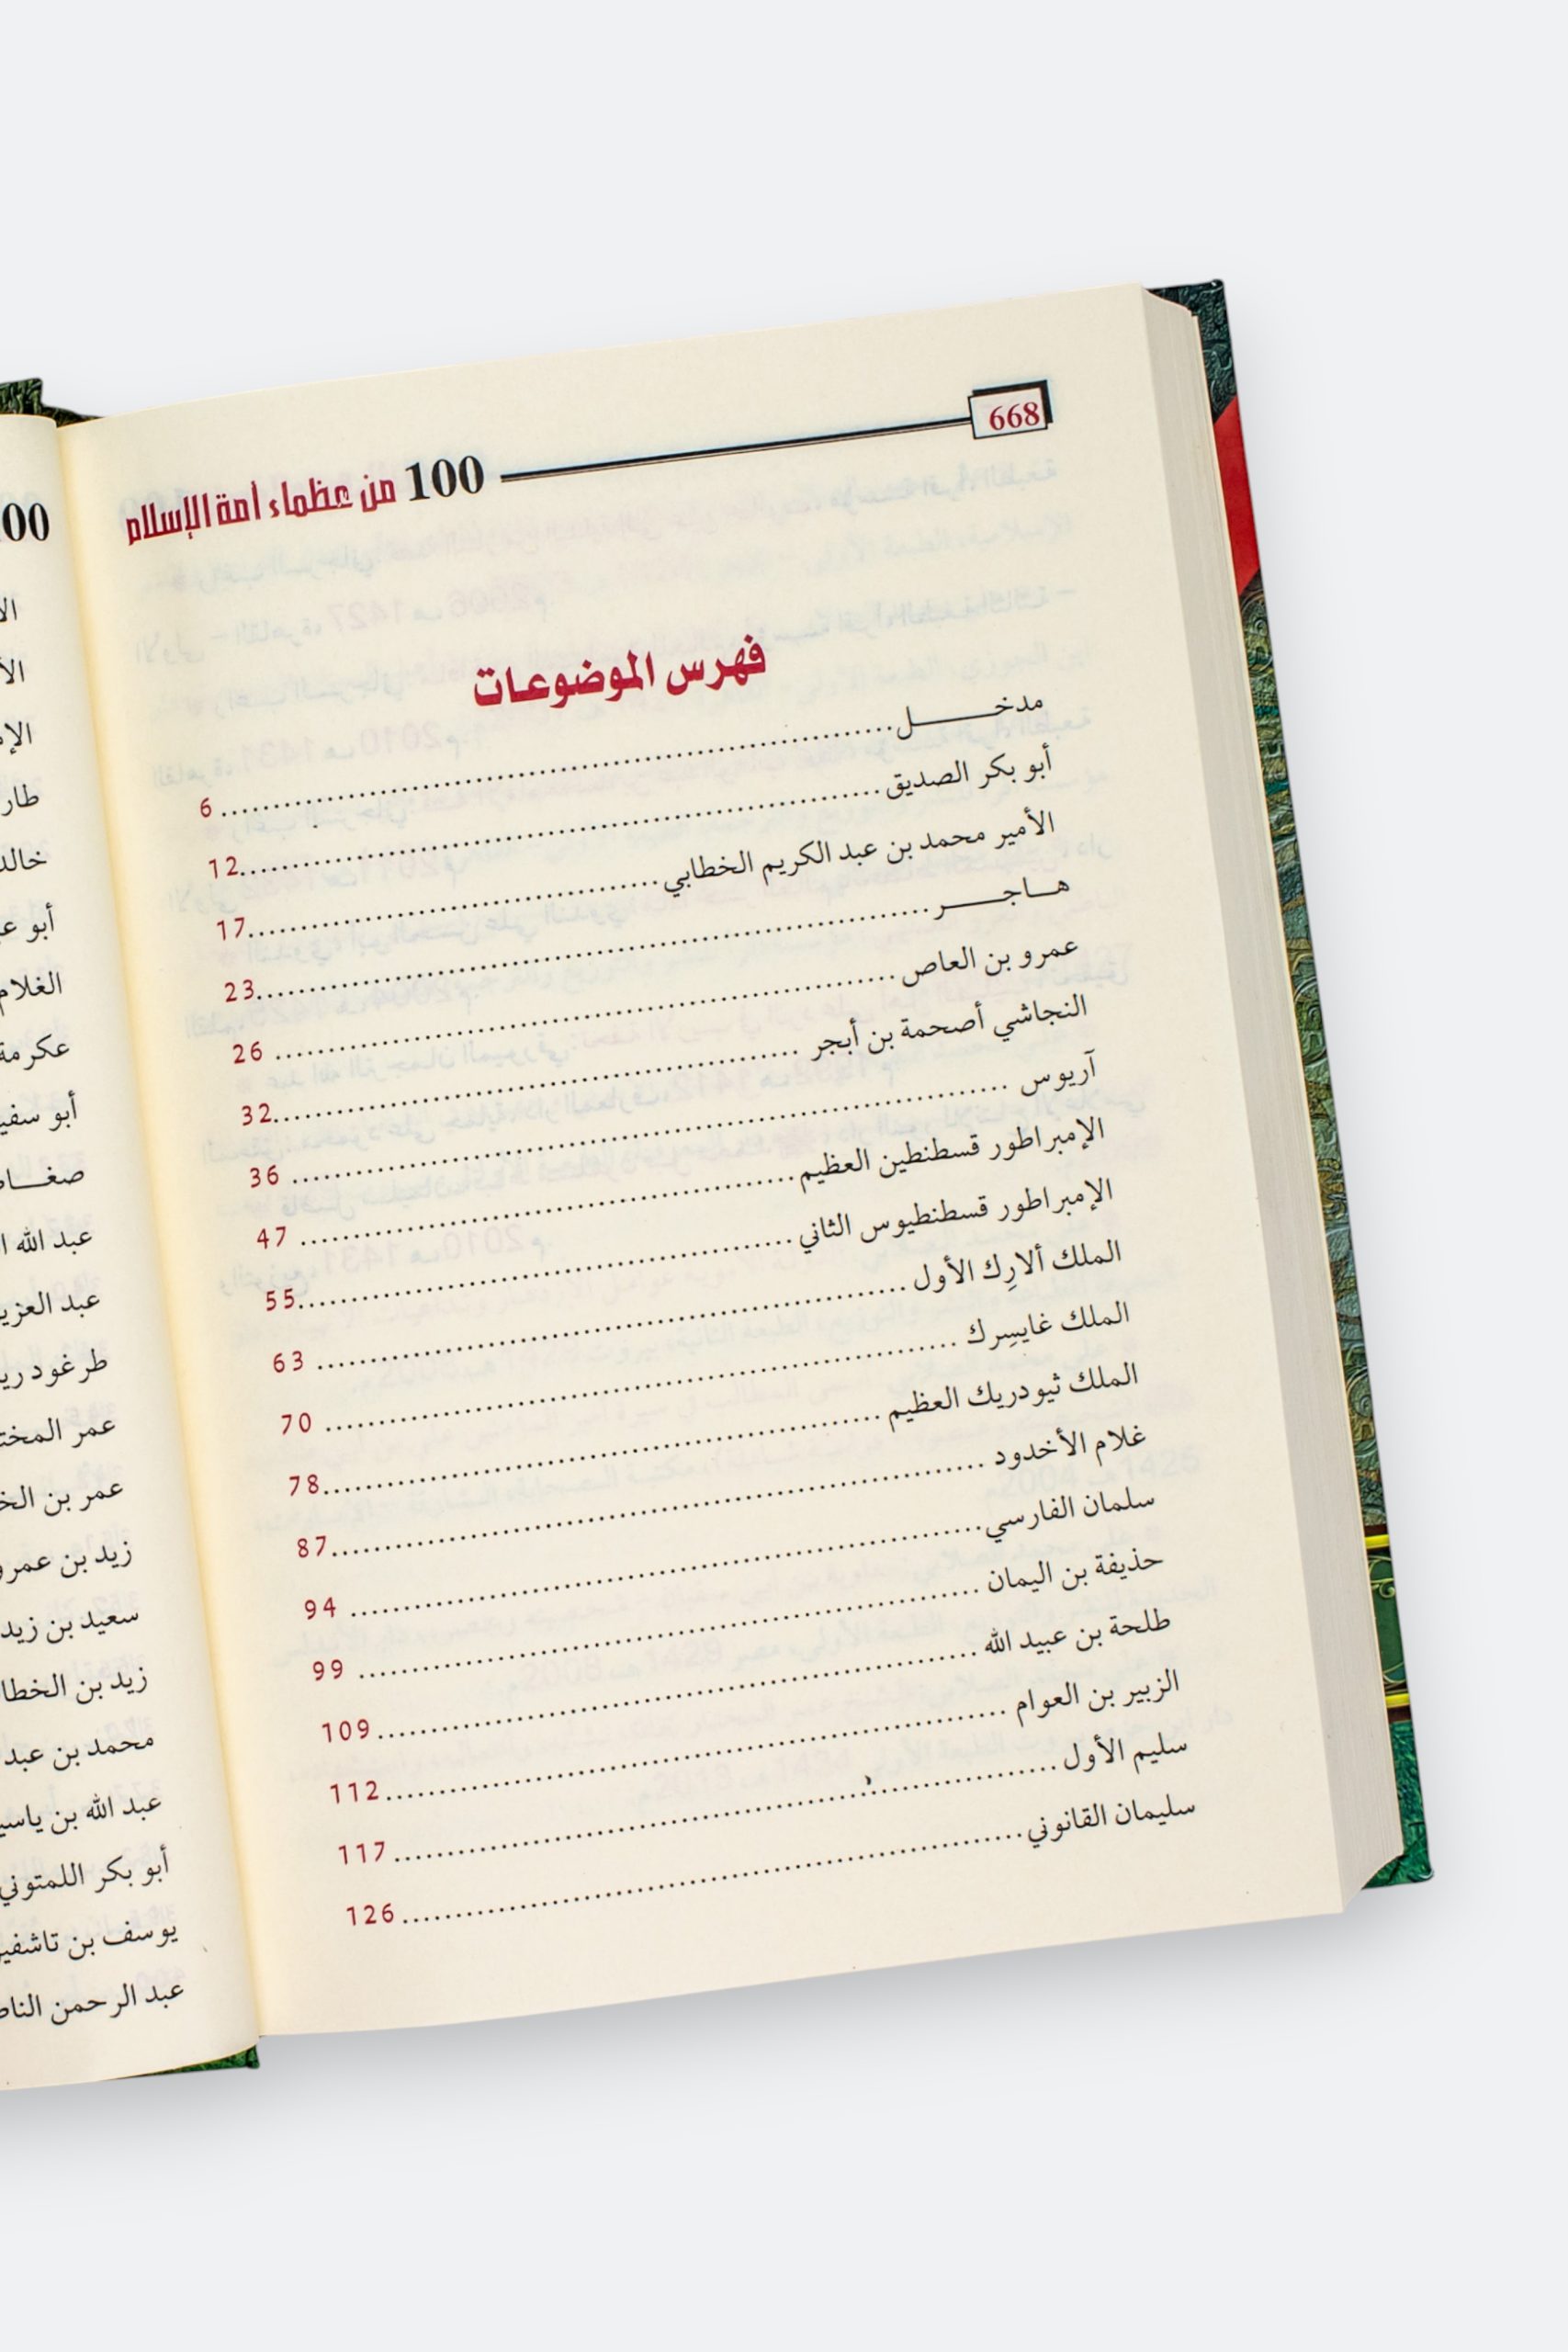 668
100 من عظماء أمة الإسلام
فهرس الموضوعات
مدخـــــــل 6
أبو بكر الصديق 12
الأمير محمد بن عبد الكريم الخطابي 17
هـــاجـــــر 23
عمرو بن العاص 26
النجاشي أصحمة بن أبجر 32
آريوس 36
الإمبراطور قسطنطين العظيم 47
الإمبراطور قسطنطيوس الثاني 55
الملك ألارِك الأول 63
الملك غايسِرك 70
الملك ثيودريك العظيم 78
غلام الأخدود 87
سلمان الفارسي 94
حذيفة بن اليمان 99
طلحة بن عبيد الله 109
الزبير بن العوام 112
سليم الأول 117
سليمان القانوني 126
أبو
عكرمة
أبو
عبد الله
عبد
طرغود
عمر
عمر بن
زيد بن عمرو
سعيد بن زيد
زيد بن
محمد بن عبد
عبد الله بن
أبو بكر اللمتوني
يوسف بن
عبد الرحمن